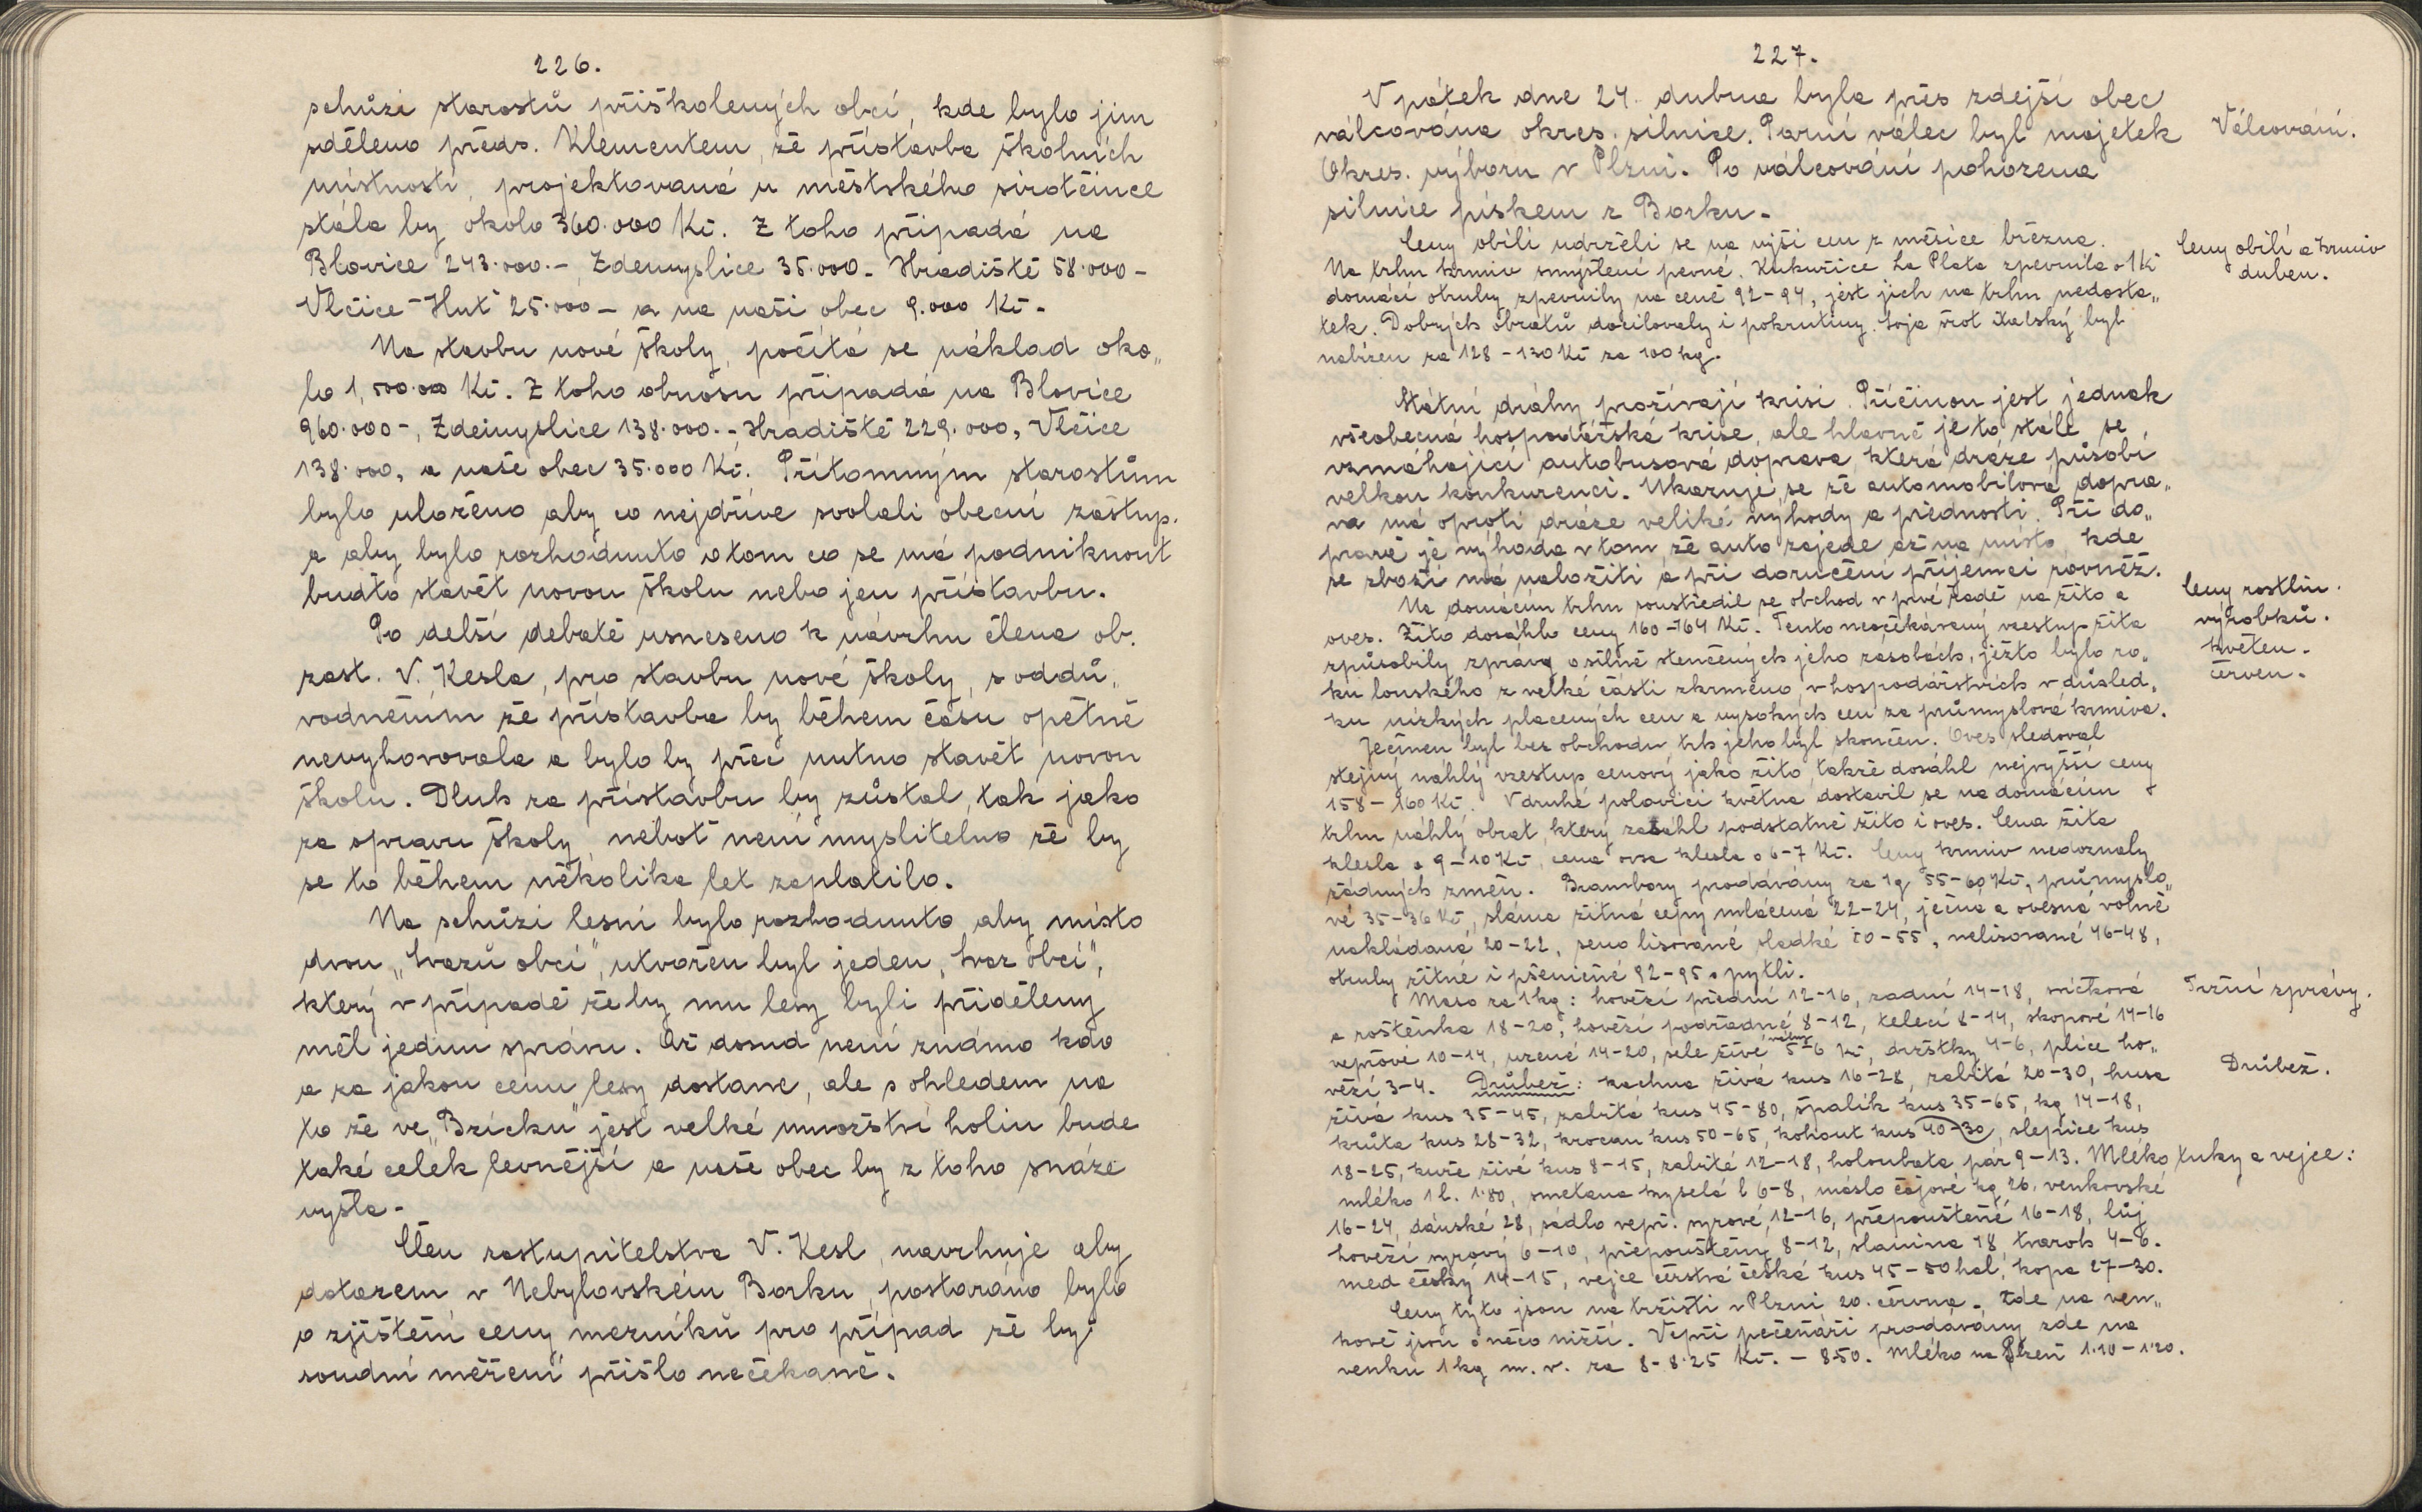 226.
schůzi starostů přiškolených obcí, kde bylo jim
sděleno předs. Klementem, že přístavba školních
místností, projektovaná u městského sirotčince
stála by okolo 360.000 Kč. Z toho připadá na
Blovice 243.000.-, Zdemyslice 35.000.- Hradiště 58.000-
Vlčice-Huť 25.000- a na naši obec 9.000 Kč-
Na stavbu nové školy, počítá se náklad oko„
lo 1,500.000 Kč. Z toho obnosu připadá na Blovice
960.000-, Zdemyslice 138.000.-, Hradiště 229.000, Vlčice
138.000, a naše obec 35.000 Kč. Přítomným starostům
bylo uloženo aby co nejdříve svolali obecní zastup.
a aby bylo rozhodnuto o tom co se má podniknout
buďto stavět novou školu nebo jen přístavbu.
Po delší debatě usneseno k návrhu člena ob.
zast. V. Kesla, pro stavbu nové školy, s oddů„
vodněním že přístavba by během času opětně
nevyhovovala a bylo by přec nutno stavět novou
školu. Dluh za přístavbu by zůstal, tak jako
za opravu školy, neboť není myslitelno že by
se to během několika let zaplatilo.
Na schůzi lesní bylo rozhodnuto, aby místo
dvou „svazů obcí", utvořen byl jeden „svaz obcí",
který v případě že by mu lesy byli přiděleny
měl jednu správu. Až dosud není známo kdo
a za jakou cenu lesy dostane, ale s ohledem na
to že ve „Bzícku" jest velké množství holin bude
také celek levnější a naše obec by z toho snáze
vyšla-
Člen zastupitelstva V. Kesl, navrhuje aby
dotazem v Nebylovském Borku, postaráno bylo
o zjištění ceny mezníků pro případ že by
soudní měření přišlo nečekaně.
227.
V pátek dne 24. dubna byla přes zdejší obec
válcována okres. silnice. Parní válec byl majetek
Okres. výboru v Plzni. Po válcování pohozena
silnice pískem z Borku-
Válcování.
Ceny obilí udrželi se na výši cen z měsíce března.
Na trhu krmiv smýšlení pevné. Kukuřice La Plata zpevnila o 1 Kč
domácí otruby zpevnily na ceně 92-94, jest jich na trhu nedosta„
tek. Dobrých obratů docilovaly i pokrutiny. Soja šrot italský byl
nabízen za 128-130 Kč za 100 kg.
Ceny obilí a krmiv
duben.
Státní dráhy prožívají krisi. Příčinou jest jednak
všeobecná hospodářská krise, ale hlavně je to stále se
vzmáhající autobusová doprava, která dráze působí
velkou konkurenci. Ukazuje se že automobilová dopra„
va má oproti dráze veliké výhody a přednosti. Při do„
pravě je výhoda v tom, že auto zajede až na místo, kde
se zboží má naložiti a při doručení příjemci rovněž.
Na domácím trhu soustředil se obchod v prvé řadě na žito a
oves. Žito dosáhlo ceny 160-164 Kč. Tento neočekávaný vzestup žita
způsobily zprávy o silně stenčených jeho zásobách, ježto bylo ro„
ku loňského z velké části zkrmeno, v hospodářstvích v důsled„
ku nízkých placených cen a vysokých cen za průmyslová krmiva.
Ceny rostlin.
výrobků.
květen-
červen-
Ječmen byl bez obchodu trh jeho byl skončen. Oves sledoval
stejný náhlý vzestup cenový jako žito, takže dosáhl nejvyšší ceny
158-160 Kč. V druhé polovici května dostavil se na domácím
trhu náhlý obrat, který zasáhl podstatně žito i oves. Cena žita
klesla o 9-10 Kč, cena ovsa klesla o 6-7 Kč. Ceny krmiv nedoznaly
žádných změn. Brambory prodávány za 1q 55-60 Kč, průmyslo„
vé 35-36 Kč, sláma žitná cepy mlácená 22-24, ječná a ovesná volně
nakládaná 20-22, seno lisované sladké 50-55, nelisované 46-48,
otruby žitné i pšeničné 92-95 s pytli.
Maso za 1 kg: hovězí přední 12-16, zadní 14-18, svíčková
a roštěnka 18-20, hovězí podřadné 8-12, telecí 8-14, skopové 14-16
vepřové 10-14, uzené 14-20, sele živé váhy 5-6 Kč, držťky 4-6, plíce ho„
vězí 3-4. Drůbež: kachna živá kus 16-28, zabitá 20-30, husa
živá kus 35-45, zabitá kus 45-80, špalík kus 35-65, kg 14-18,
krůta kus 28-32, krocan kus 50-65, kohout kus 40-30, slepice kus
18-25, kuře živé kus 8-15, zabité 12-18, holoubata pár 9-13. Mléko tuky a vejce:
mléko 1 l. 1.80, smetana kyselá l 6-8, máslo čajové kg 26, venkovské
16-24, dánské 28, sádlo vepř. syrové 12-16, přepouštěné 16-18, lůj
hovězí syrový 6-10, přepouštěný 8-12, slanina 18, tvaroh 4-6.
med český 14-15, vejce čerstvá česká kus 45-50 hal, kopa 27-30.
Tržní zprávy.
Drůbež.
Ceny tyto jsou na tržišti v Plzni 20. června-, zde na ven„
kově jsou o něco nižší. Vepři pečenáři prodávány zde na
venku 1 kg m. v. za 8-8.25 Kč.-8.50. Mléko na Plzeň 1.10-1.20.